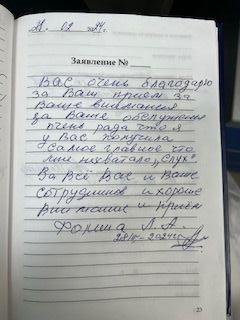 28. 02 24г.
Заявление №
Вас очень благодарю
за Ваш прием за
Ваше внимания
за Ваше обслужения
очень рада что я
у Вас получила
Самое главное что
мне нехватало „Слух"
За Всё Вас и Ваше
сотрудников и хорошие
внимание и приём
Фомина Л. А.
28/II-2024г.
23